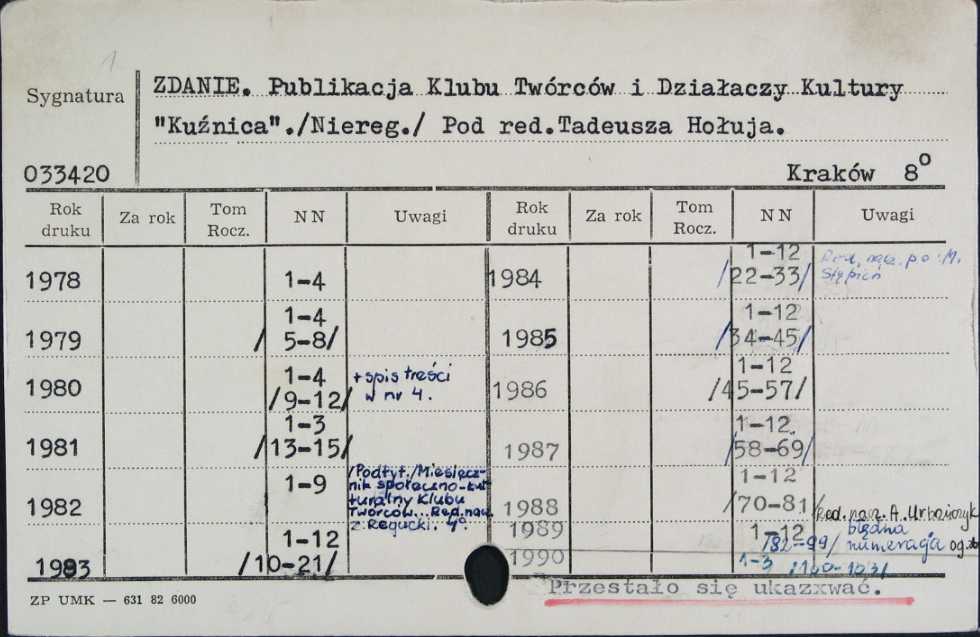 1
ZDANIE. Publikacja Klubu Twórców i Działaczy Kultury
Sygnatura
"Kuźnica"./Niereg./ Pod red.Tadeusza Hołuja.
033420
Kraków 8°
Rok druku Za rok Tom Rocz. NN Uwagi Rok druku Za rok Tom Rocz. NN Uwagi
1978 1-4
1979 1-4
/ 5-8/
1980 1-4 +spis treści
/9-12/ w nr 4.
1981 1-3
/13-15/
1982 1-9 /Podtyt./Miesięcz-
nik społeczno-kul
turalny Klubu
Twórców...Red.nacz.
Z.Regucki. 4°.
1983 1-12
/10-21/
1984 1-12 Red. nacz. p.o. M.
/22-33/ Stępień
1985 1-12
/34-45/
1986 1-12
/45-57/
1987 1-12.
/58-69/
1988 1-12
/70-81/ Red. nacz. A. Urbańczyk
1989 1-12 błędna
/82-99/ numeracja
1990 1-3 /100-103/
Przestało się ukazxwać.
ZP UMK — 631 82 6000